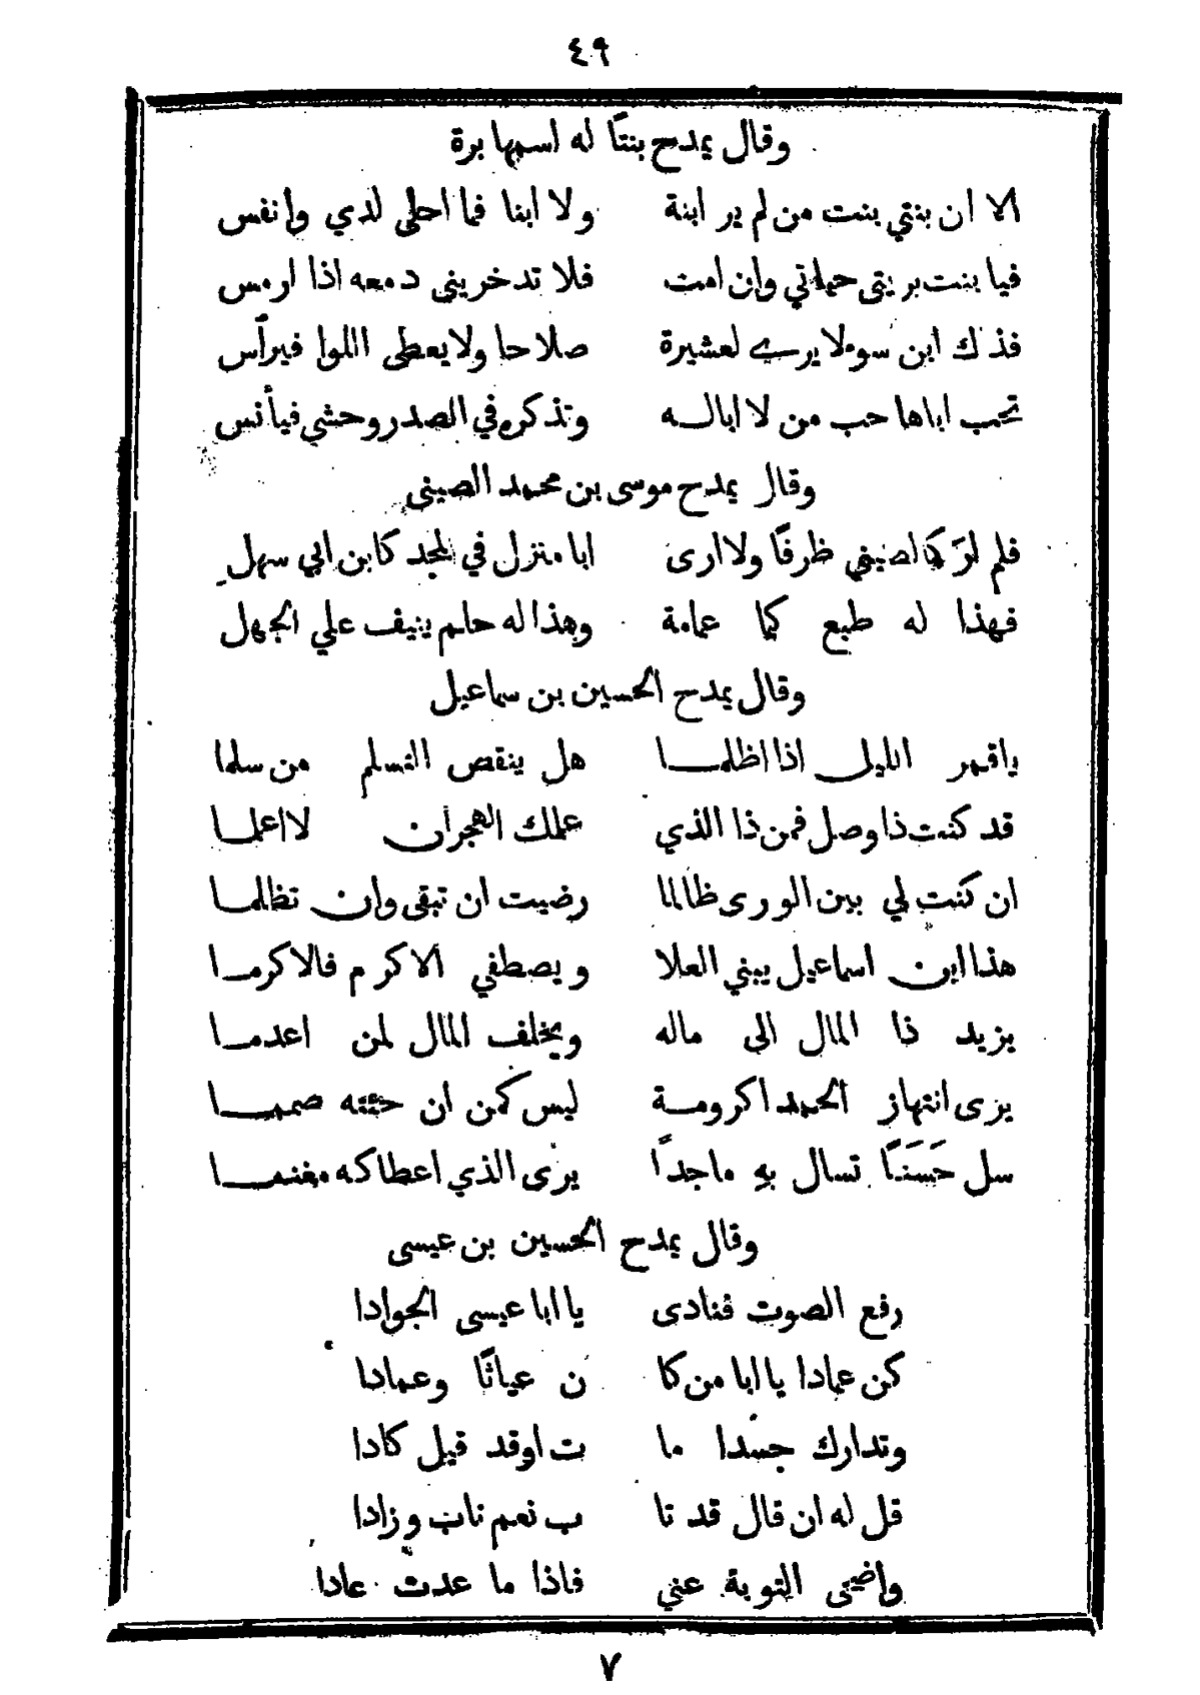 ٤٩
وقال يمدح بنتًا له اسمها برة
الا ان بنتي بنت من لم ير ابنة ولا ابنا فما احلى لدي وانفس
فيا بنت بريتى حياتي وان امت فلا تدخريني دمعه اذا ارمس
فذلك ابن سوء لا يرى لعشيرة صلاحا ولا يعطى اللوا فيرأس
تحب اباها حب من لا ابا له وتذكره في الصدر وحشي فيأنس
وقال يمدح موسى بن محمد الصيني
فلم ارَ كالصيني ظرفًا ولا ارى ابا منزل في المجد كابن ابي سهل
فهذا له طبع كما عمامة وهذا له حلم ينيف علي الجهل
وقال يمدح الحسين بن سماعيل
ياقمر الليل اذا اظلما هل ينقص التسلم من سلما
قد كنت ذا وصل فمن ذا الذي علمك الهجران لا اعلما
ان كنت لي بين الورى ظالما رضيت ان تبقى وان تظلما
هذا ابن اسماعيل يبني العلا ويصطفي الاكرم فالاكرما
يزيد ذا المال الى ماله ويخلف المال لمن اعدما
يرى انتهاز الحمد اكرومة ليس كمن ان جئته صمما
سل حَسَنًا تسال به ماجدًا يرى الذي اعطاكه مغنما
وقال يمدح الحسين بن عيسى
رفع الصوت فنادى يا ابا عيسى الجوادا
كن عمادا يا ابا من كا ن عياثًا وعمادا
وتدارك جسدا ما ت اوقد قيل كادا
قل له ان قال قد تا ب نعم تاب وزادا
واضمنى التوبة عني فاذا ما عدت عادا
٧